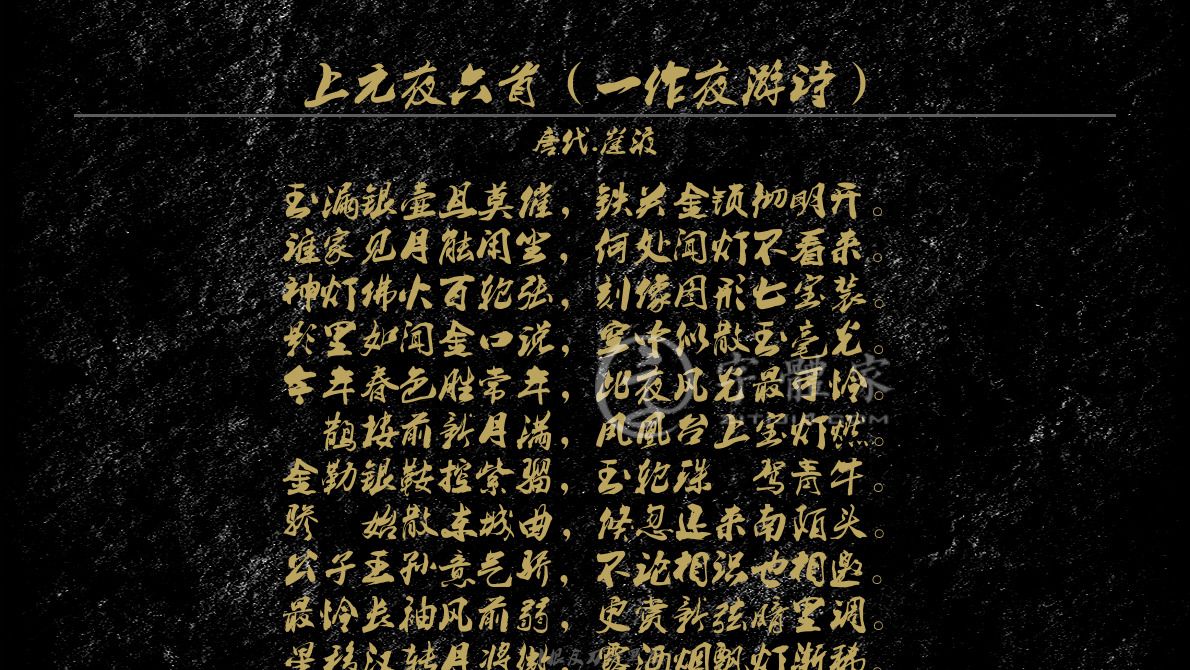 上元夜六首（一作夜游诗）
唐代.崔液
玉漏银壶且莫催，铁关金锁彻明开。
谁家见月能闲坐，何处闻灯不看来。
神灯佛火百轮张，刻像图形七宝装。
影里如闻金口说，空中似散玉毫光。
今年春色胜常年，此夜风光最可怜。
鹊楼前新月满，凤凰台上宝灯燃。
金勒银鞍控紫骝，玉轮珠 驾青牛。
骄 始散东城曲，倏忽还来南陌头。
公子王孙意气骄，不论相识也相邀。
最怜长袖风前弱，更赏新弦暗里调。
星移汉转月将微，露洒烟飘灯渐稀。
字體家